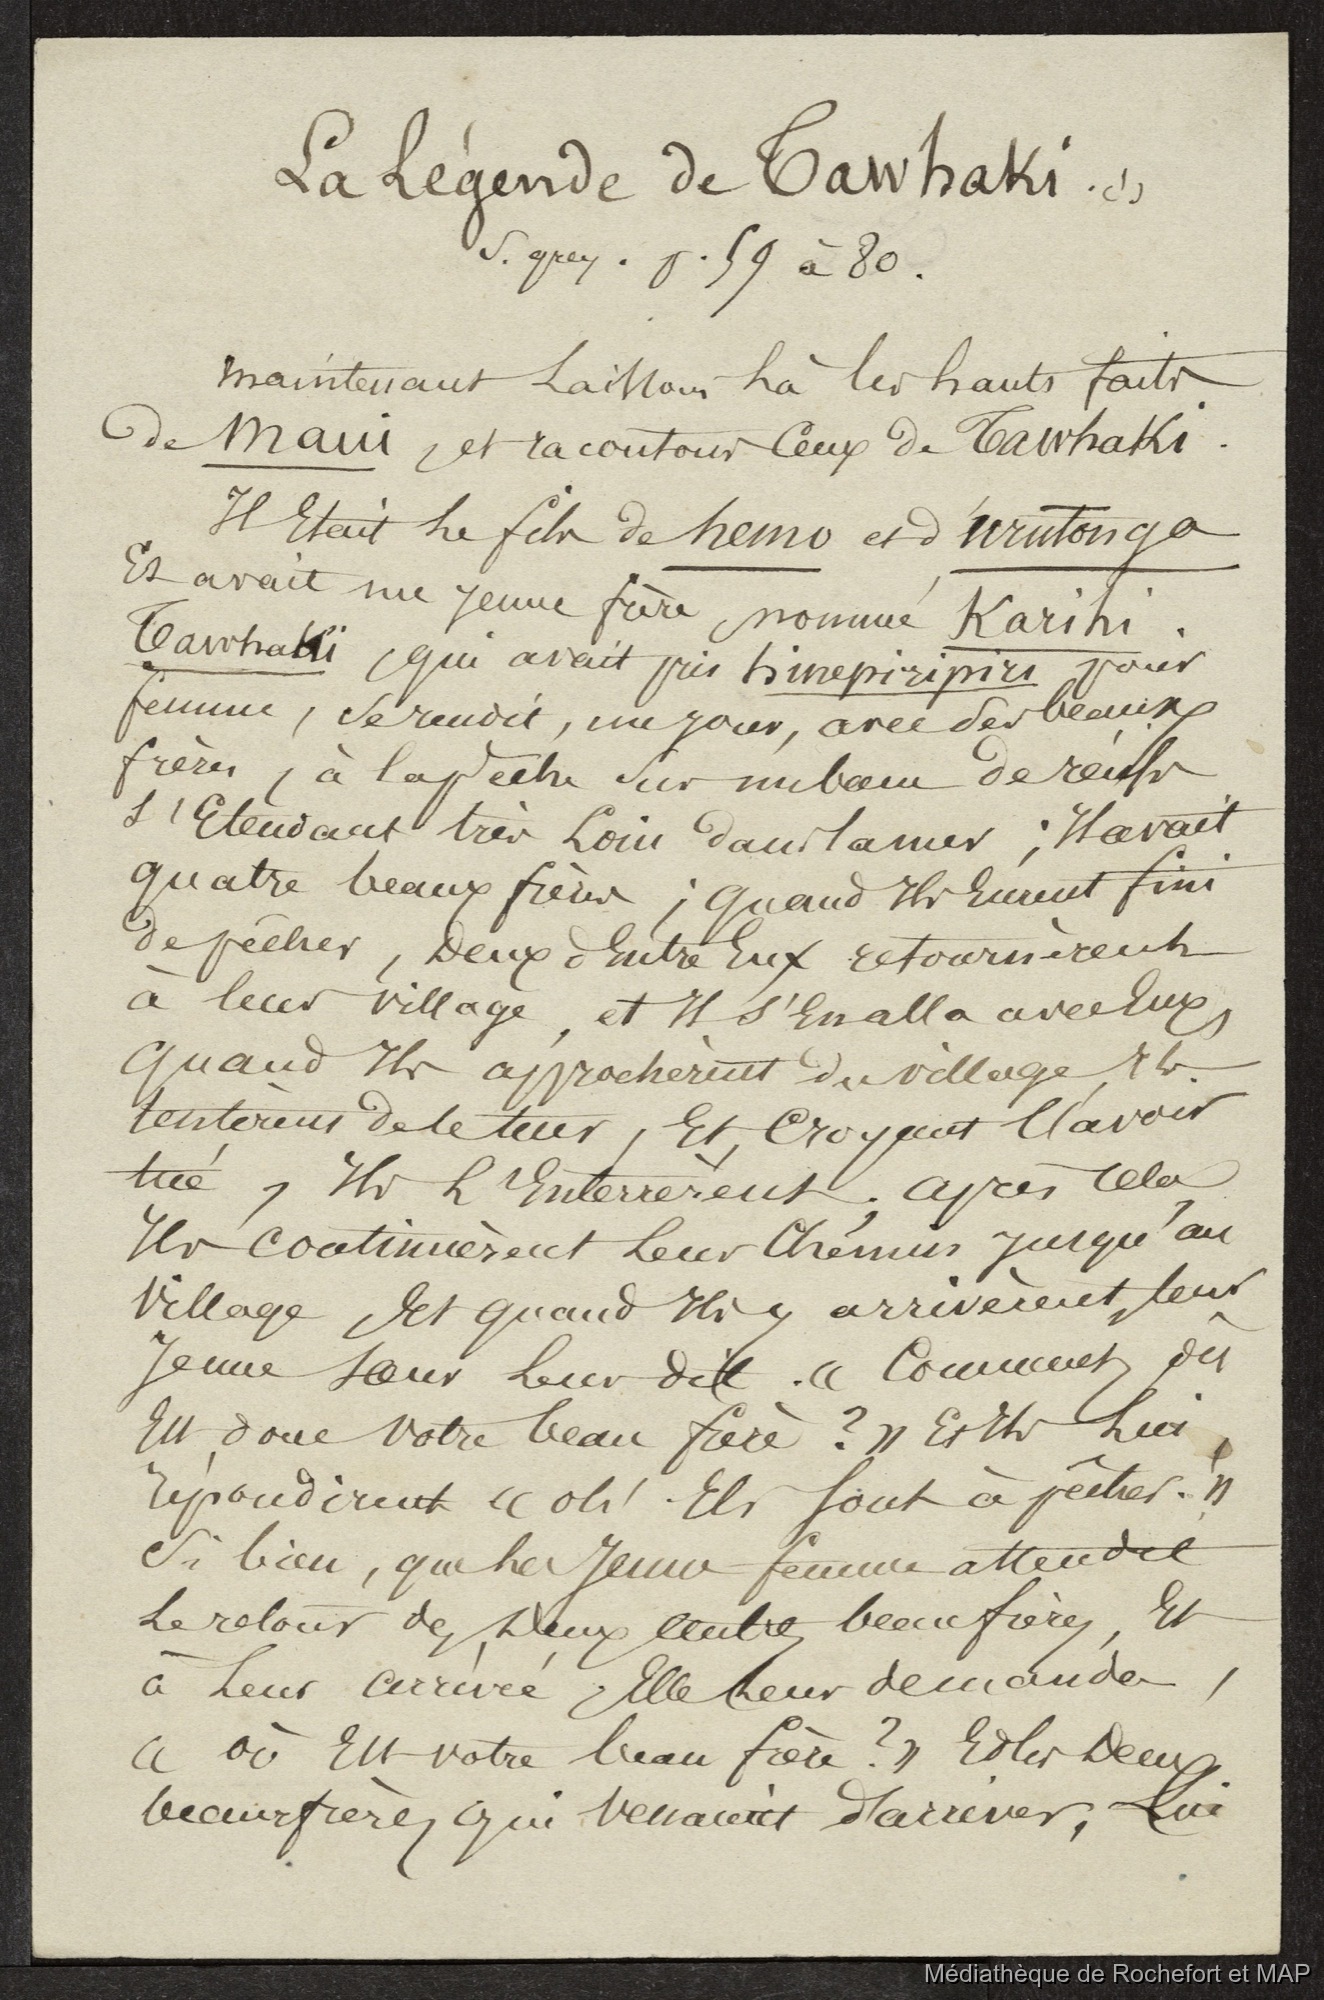 La Légende de Tawhaki. (1)
S. grey. p. 59 à 80.
maintenant Laissons Là les hauts faits
de Maui, et racontons Ceux de Tawhaki.
Il Etait Le fils de hemo et d'urutonga
Et avait un jeune frère, nommé Karihi.
Tawhaki, qui avait pris hinepiripiri pour
femme, Se rendit, un jour, avec Ses beaux
frères, à la pêche Sur un banc de récifs
S'Etendant très Loin dans la mer ; Il avait
quatre beaux frères ; quand Ils Eurent fini
de pêcher, Deux d'Entre Eux retournèrent
à leur village, et Il S'En alla avec Eux,
quand Ils approchèrent du village, Ils
tentèrent de le tuer, Et, Croyant l'avoir
tué, Ils L'Enterrèrent ; après cela
Ils continuèrent Leur Chemin jusqu'au
village, Et quand Ils y arrivèrent, leur
jeune sœur Leur dit. « Comment, où
Est donc votre beau frère ? » Et Ils Lui
répondirent « oh ! Ils Sont à pêcher. ! »
Si bien, que La Jeune femme attendit
Le retour des Deux autres beaux frères, Et
à Leur arrivée, Elle Leur demanda,
« où Est votre beau frère ? » Et les Deux
beaux frères, qui Venaient d'arriver, Lui
Médiathèque de Rochefort et MAP